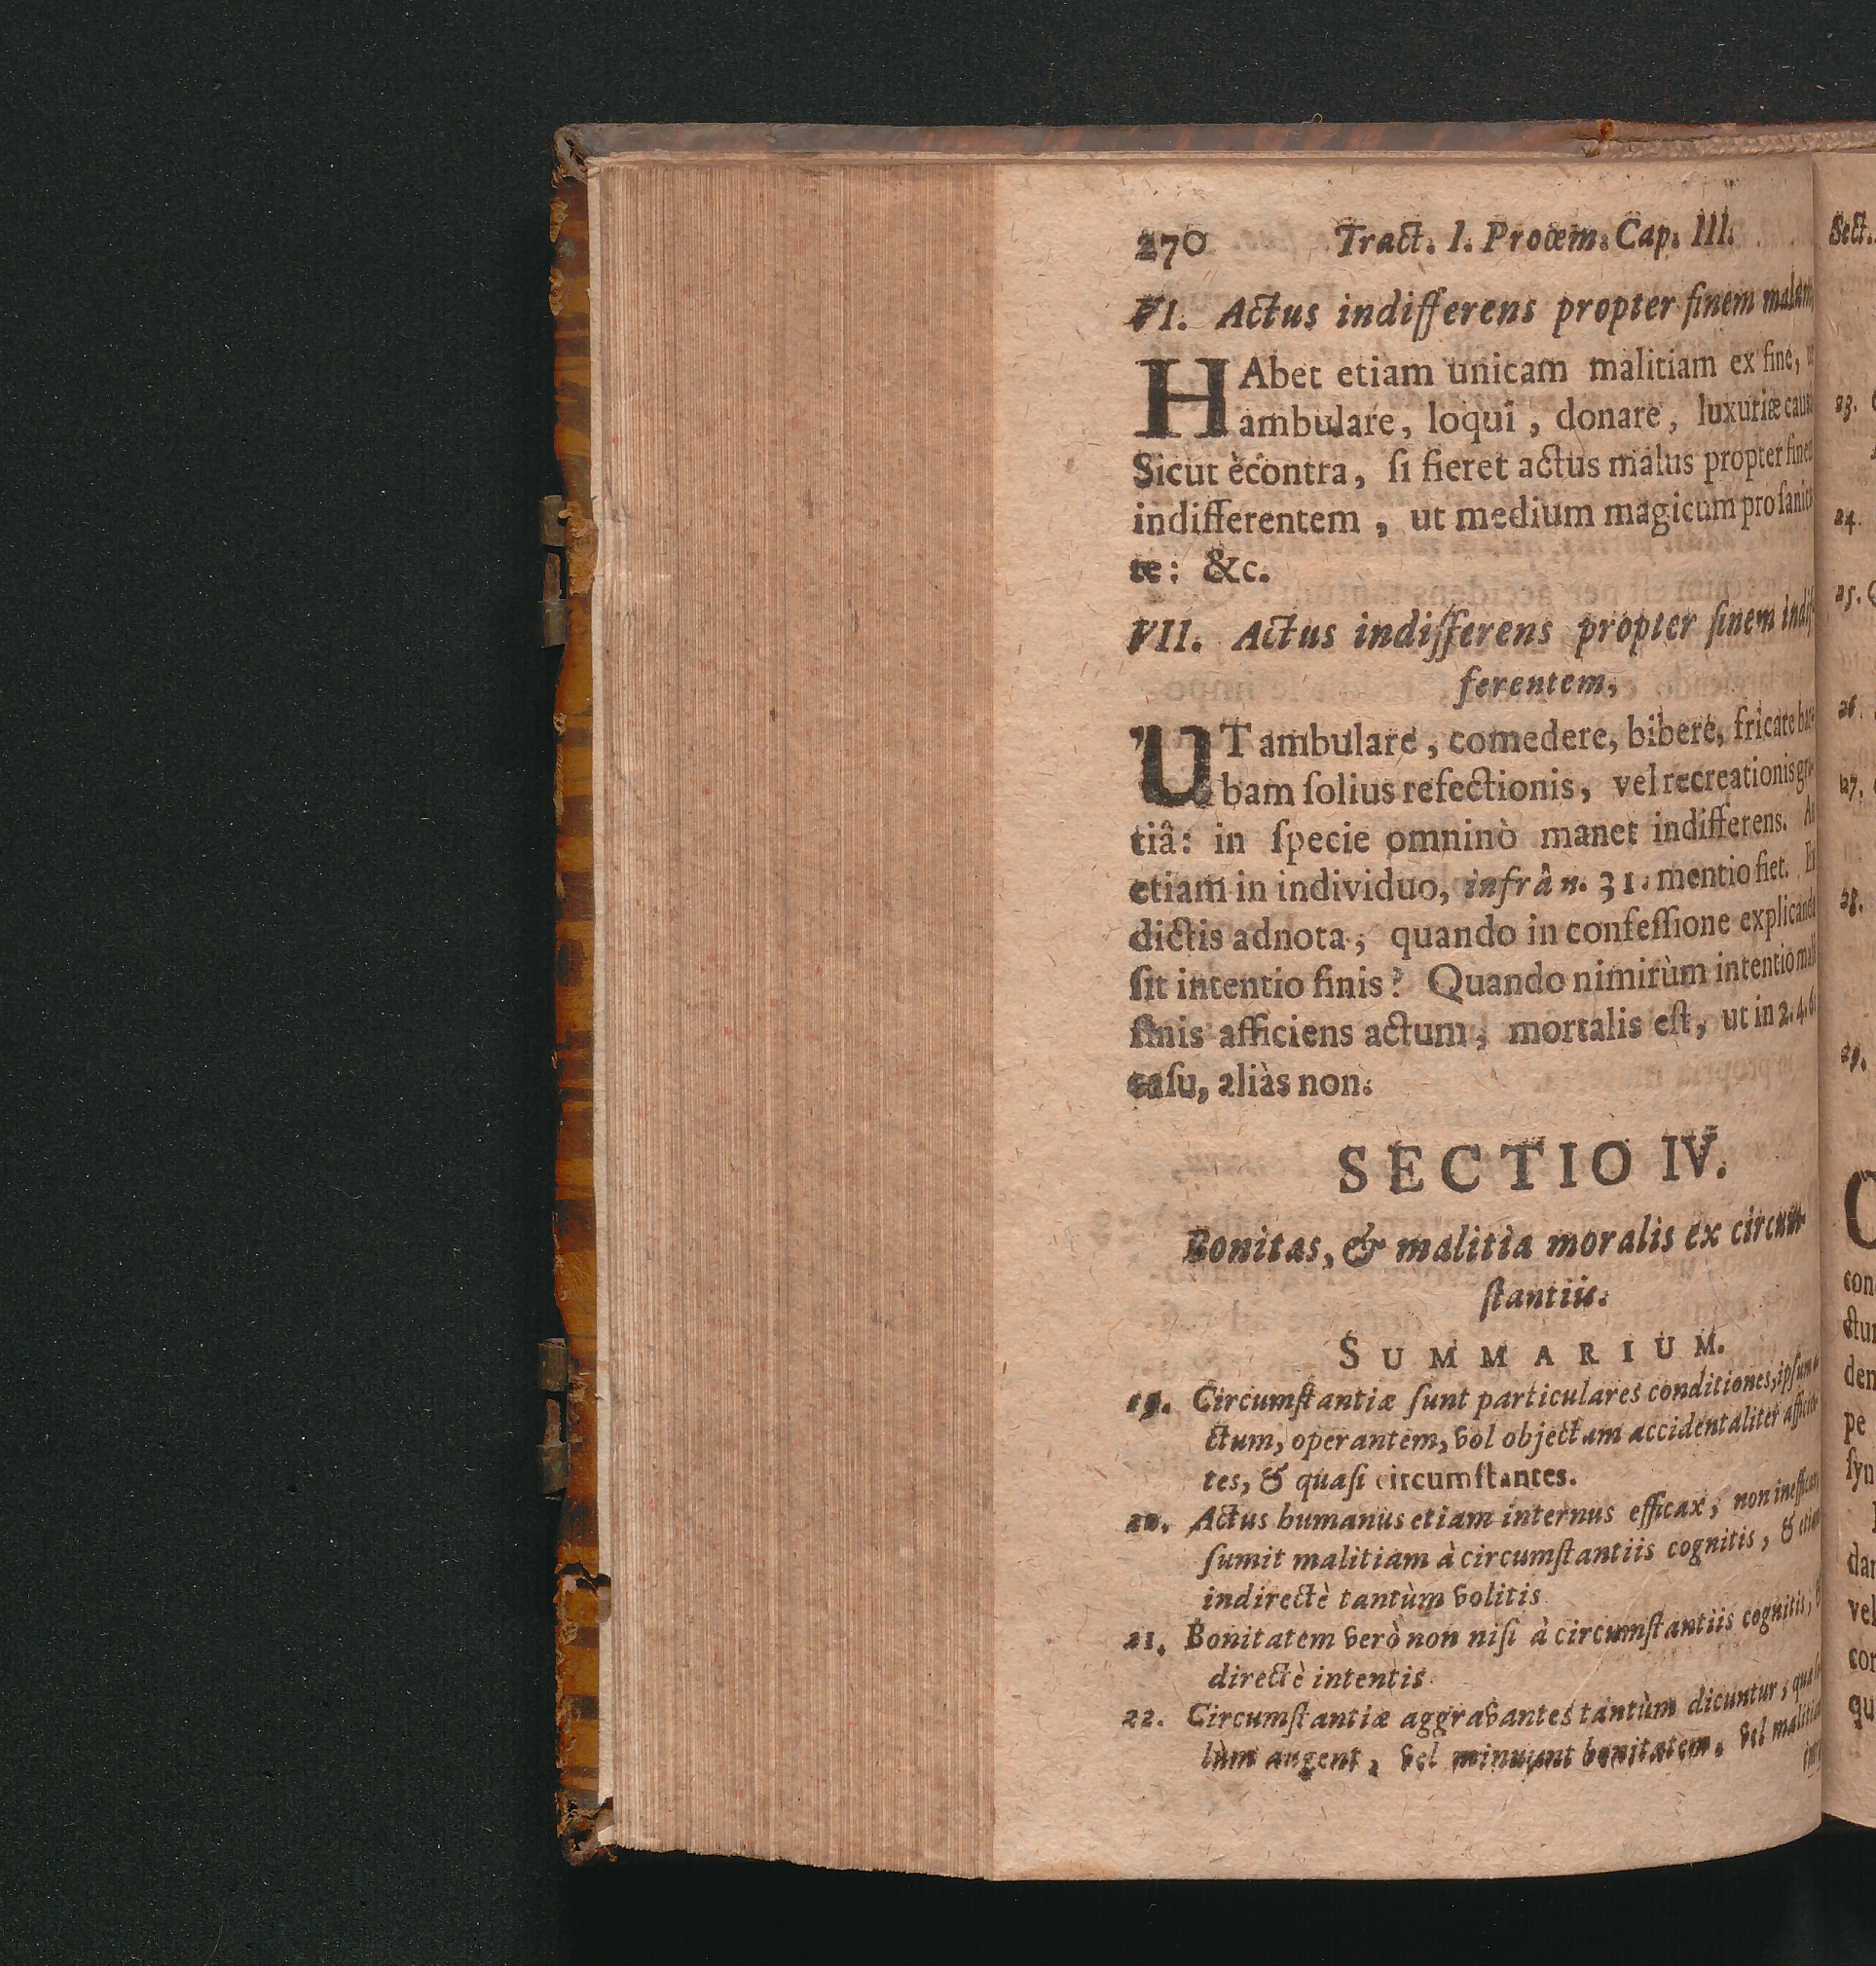 270 Tract. I. Proœm. Cap. III.
VI. Actus indifferens propter finem malum,
HAbet etiam unicam malitiam ex fine, ut
ambulare, loqui, donare, luxuriæ causâ
Sicut ècontra, ſi fieret actus malus propter finem
indifferentem, ut medium magicum pro ſanita-
te: &c.
VII. Actus indifferens propter finem indif-
ferentem,
UT ambulare, comedere, bibere, fricare bar-
bam ſolius refectionis, vel recreationis gra-
tiâ: in ſpecie omninò manet indifferens. An
etiam in individuo, infrâ n. 31. mentio fiet. Ex
dictis adnota; quando in confeſſione explicanda
ſit intentio finis? Quando nimirùm intentio mali
finis afficiens actum, mortalis eſt, ut in 2. 4. 6.
caſu, aliàs non.
SECTIO IV.
Bonitas, & malitia moralis ex circum-
ſtantiis.
SUMMARIUM.
19. Circumſtantiæ ſunt particulares conditiones, ipſum a-
ctum, operantem, vel objectum accidentaliter afficien-
tes, & quaſi circumſtantes.
20. Actus humanus etiam internus efficax, non inefficax,
ſumit malitiam à circumſtantiis cognitis, & etiam
indirectè tantùm volitis
21. Bonitatem verò non niſi à circumſtantiis cognitis, &
directè intentis.
22. Circumſtantiæ aggravantes tantùm dicuntur, quæ ſo-
lùm augent, vel minuunt bonitatem, vel malitiam
Sect.
23.
24.
25.
26.
27.
28.
29.
con
ctum
den
pe
ſyn
dar
vel
con
qu